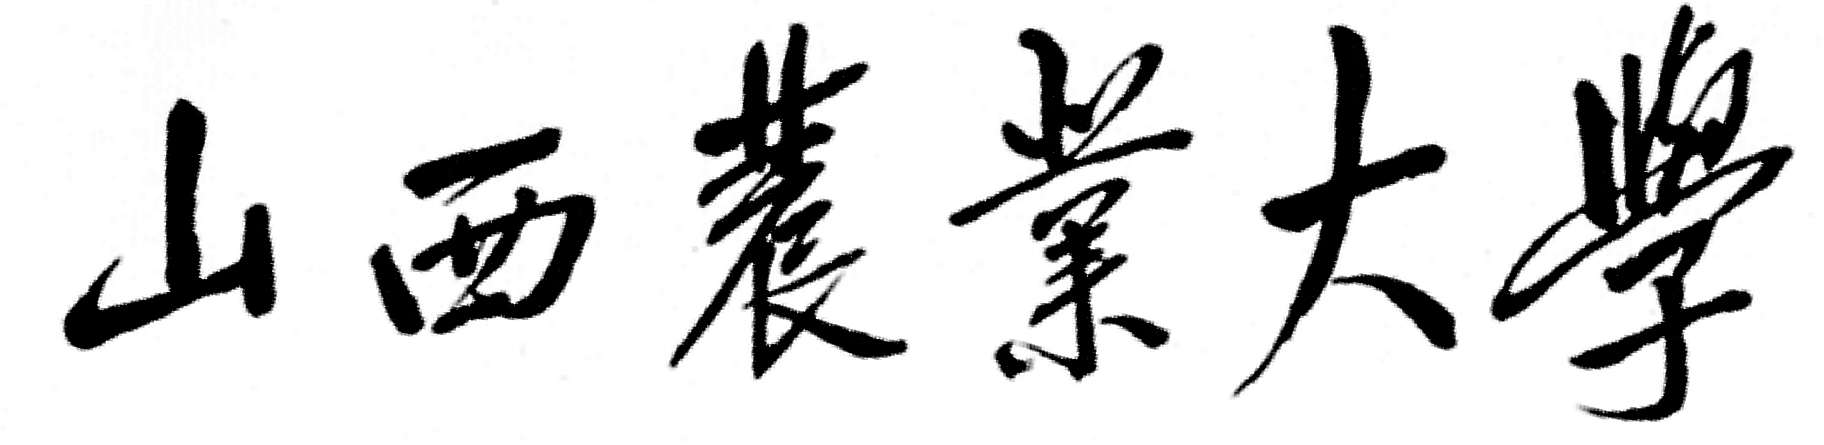 山西農業大學